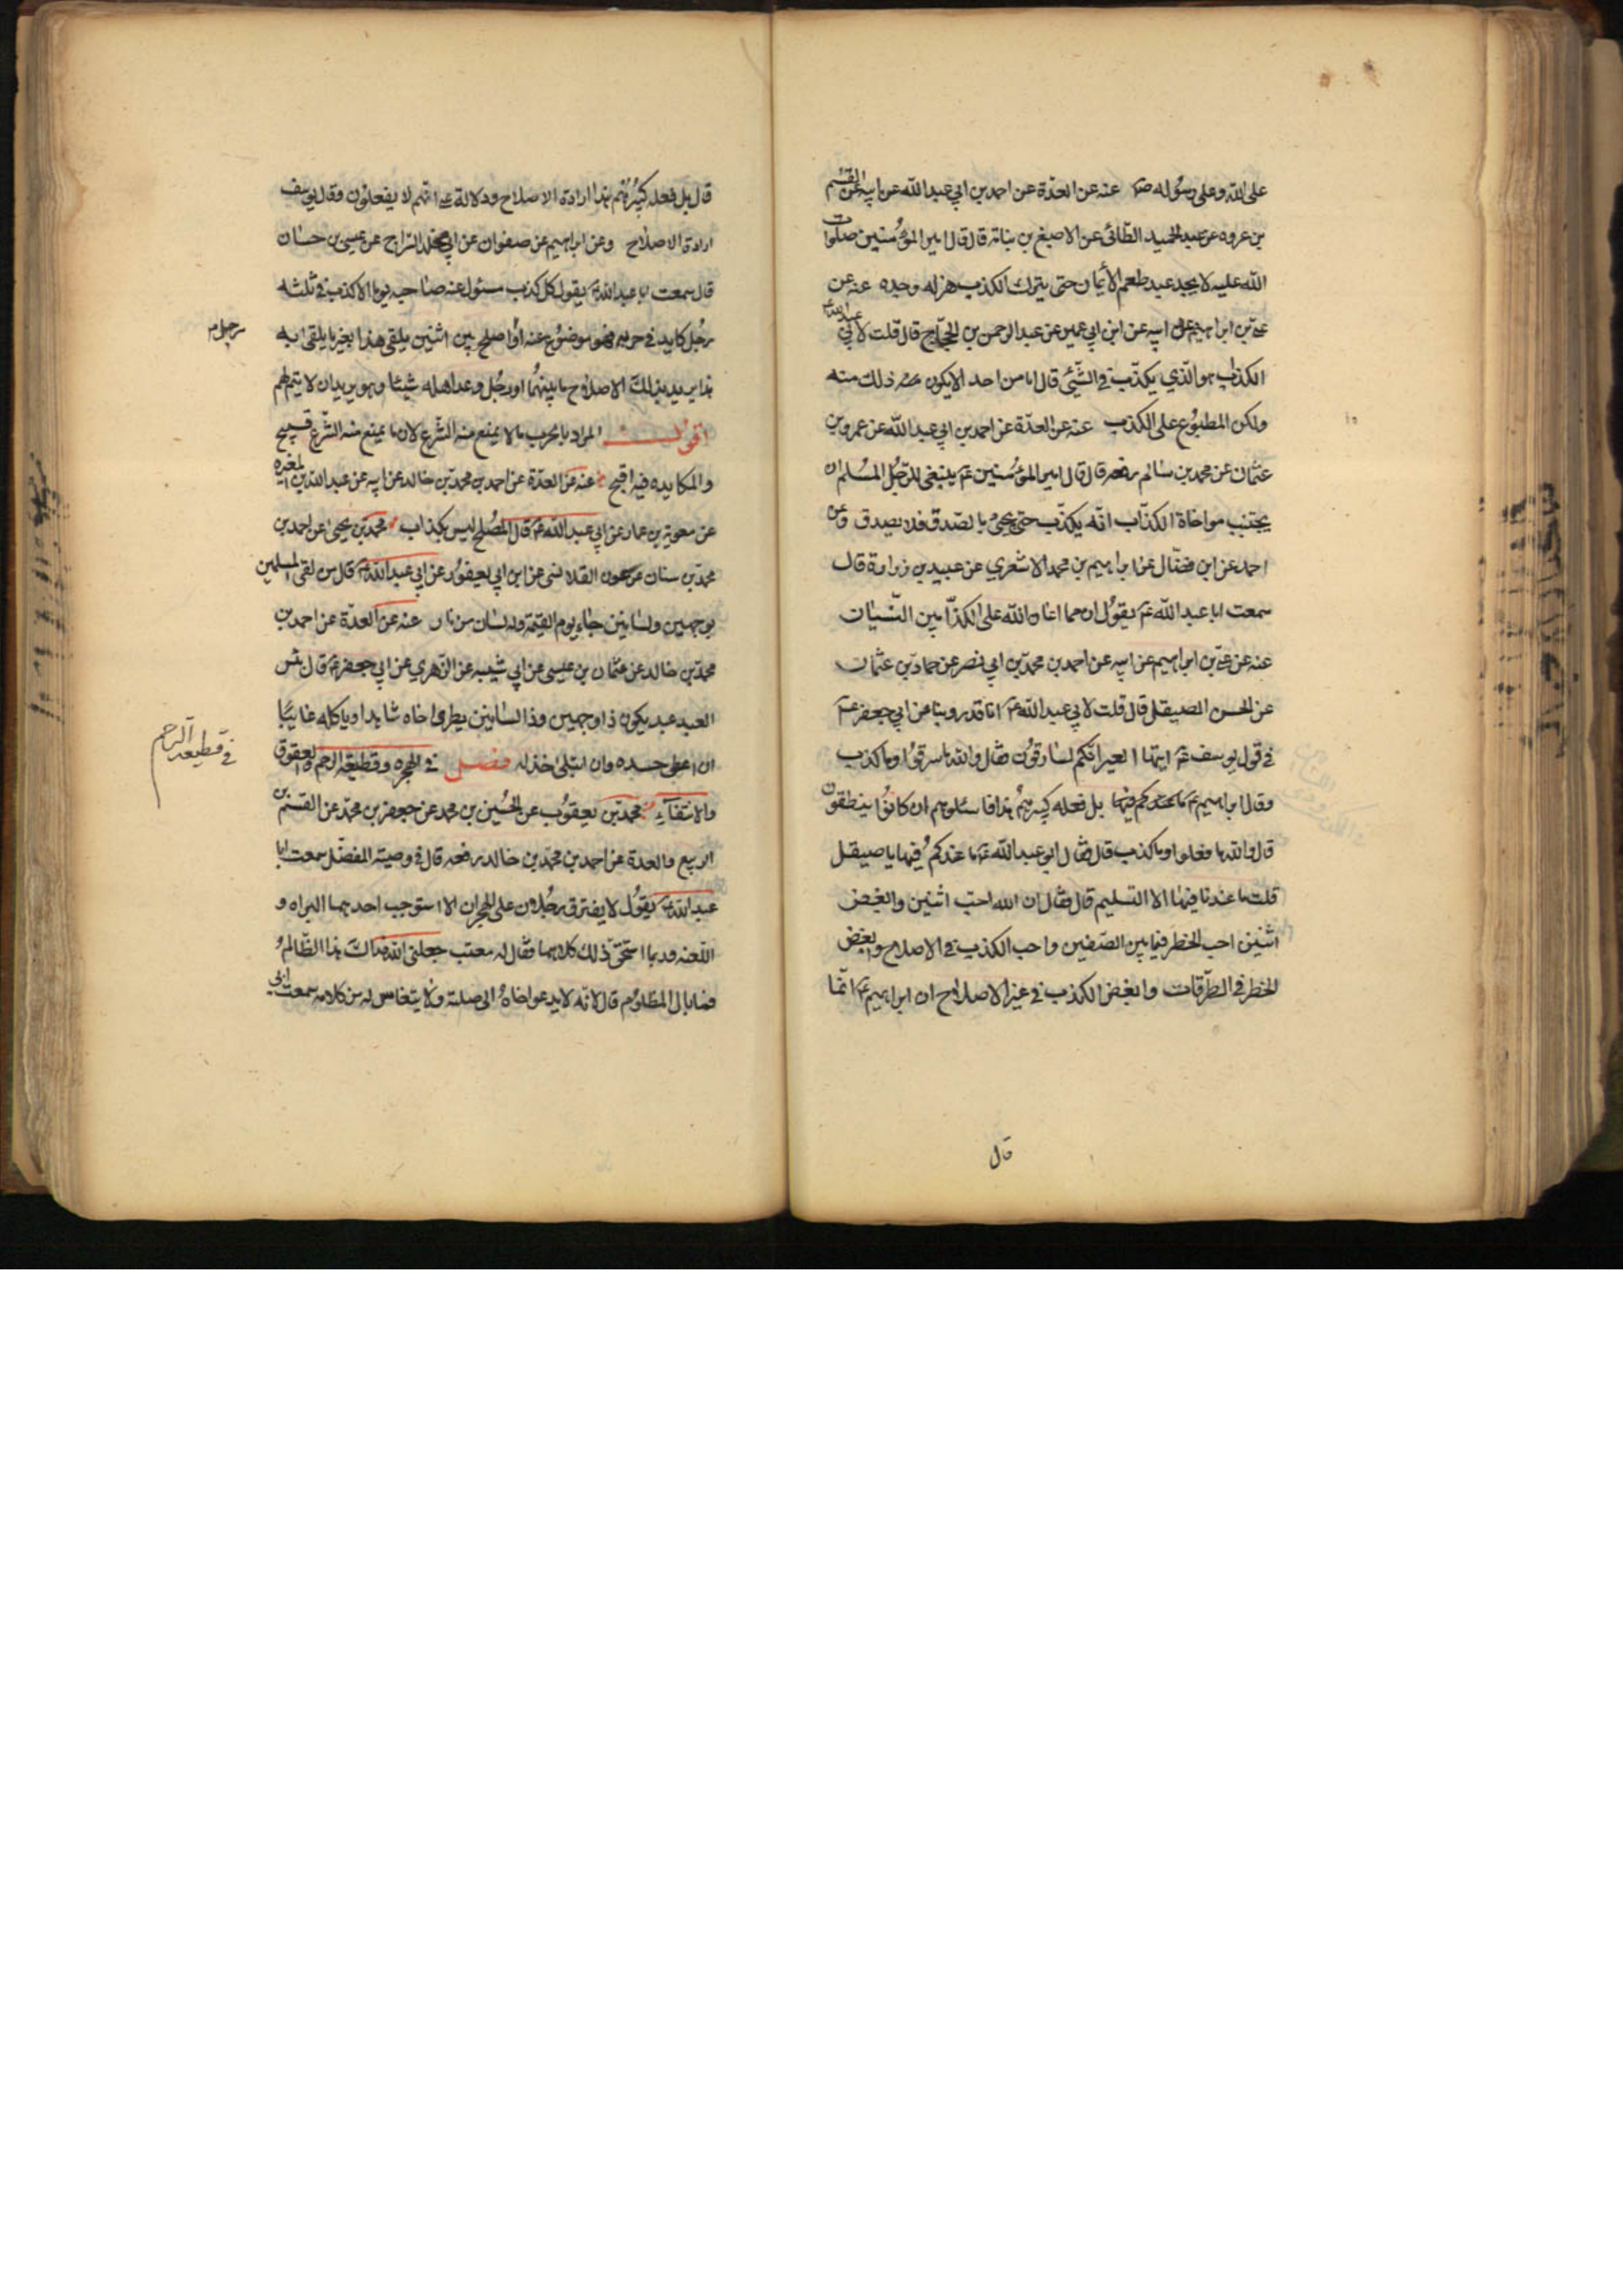 على الله وعلى رسوله ص عنه عن العدة عن احمد بن ابي عبد الله عن ابيه عن القسم
بن عروه عن عبد الحميد الطائى عن الاصبغ بن نباتة قال قال امير المؤمنين صلوات
الله عليه لا يجد عبد طعم الأيمان حتى يترك الكذب هزله وجده عنه عن
على بن ابراهيم عن ابيه عن ابن ابي عمير عن عبد الرحمن بن الحجاج قال قلت لابي عبد الله ع
الكذاب هو الذي يكذب في الشئ قال لا ما من احد الا يكون منه ذلك منه
ولكن المطبوع على الكذب عنه عن العدة عن احمد بن ابي عبد الله عن عمرو بن
عثمان عن محمد بن سالم رفعه قال قال امير المؤمنين ع ينبغى للرجل المسلم ان
يجتنب مواخاة الكذاب انه يكذب حتى يجئ بالصدق فلا يصدق وعن
احمد عن ابن فضال عن ابراهيم بن محمد الاشعري عن عبيد بن زرارة قال
سمعت ابا عبد الله ع يقول ان مما اعان الله على الكذابين النسيان
عنه عن على بن ابراهيم عن ابيه عن احمد بن محمد بن ابي نصر عن حماد بن عثمان
عن الحسن الصيقل قال قلت لابي عبد الله ع انا قد روينا عن ابي جعفر ع
في قول يوسف ع ايتها العير انكم لسارقون فقال والله ما سرقوا وما كذب
وقال ابراهيم ع بل فعله كبيرهم هذا فاسئلوهم ان كانوا ينطقون
قال والله ما فعلوا وما كذب قال فقال ابو عبد الله ع ما عندكم فيها يا صيقل
قلت ما عندنا فيها الا التسليم قال فقال ان الله احب اثنين وابغض
اثنين احب الخطر فيما بين الصفين واحب الكذب في الاصلاح وابغض
الخطر في الطرقات وابغض الكذب في غير الاصلاح ان ابراهيم ع انما
قال
قال بل فعله كبيرهم هذا ارادة الاصلاح ودلالة على انهم لا يفعلون وقال يوسف
ارادة الاصلاح وعن ابراهيم عن صفوان عن ابي مخلد السراج عن عيسى بن حسان
قال سمعت ابا عبد الله ع يقول كل كذب مسئول عنه صاحبه يوما الا كذب في ثلثه
رجل كايد في حربه فهو موضوع عنه او اصلح بين اثنين يلقى هذا بغير ما يلقى به
هذا يريد بذلك الاصلاح ما بينهما او رجل وعد اهله شيئا وهو يريد ان لا يتم لهم
اقول المراد بالحرب ما لا يمنع منه الشرع لان ما يمنع منه الشرع قبيح
والمكايده فيه اقبح عنه عن العدة عن احمد بن محمد بن خالد عن ابيه عن عبد الله بن المغيره
عن معوية بن عمار عن ابي عبد الله ع قال المصلح ليس بكذاب محمد بن يحيى عن احمد بن
محمد بن سنان عن عون القلانسى عن ابن ابي يعفور عن ابي عبد الله ع قال من لقى المسلمين
بوجهين ولسانين جاء يوم القيمة وله لسان من نار عنه عن العدة عن احمد بن
محمد بن خالد عن عثمان بن عيسى عن ابي شيبه عن الزهري عن ابي جعفر ع قال بئس
العبد عبد يكون ذا وجهين وذا لسانين يطرى اخاه شاهدا وياكله غايبا
ان اعطى حسده وان ابتلى خذله فصل في الهجره وقطيعة الرحم والعقوق
والانتفاء محمد بن يعقوب عن الحسين بن محمد عن جعفر بن محمد عن القسم بن
الربيع والعدة عن احمد بن محمد بن خالد رفعه قال في وصية المفضل سمعت ابا
عبد الله ع يقول لا يفترق رجلان على الهجران الا استوجب احدهما البراه و
اللعنه وربما استحق ذلك كلاهما فقال له معتب جعلنى الله فداك هذا الظالم
فما بال المظلوم قال لانه لا يدعو اخاه الى صلته ولا يتغامس له من كلامه سمعت ابي
رجل م
في قطيعة الرحم